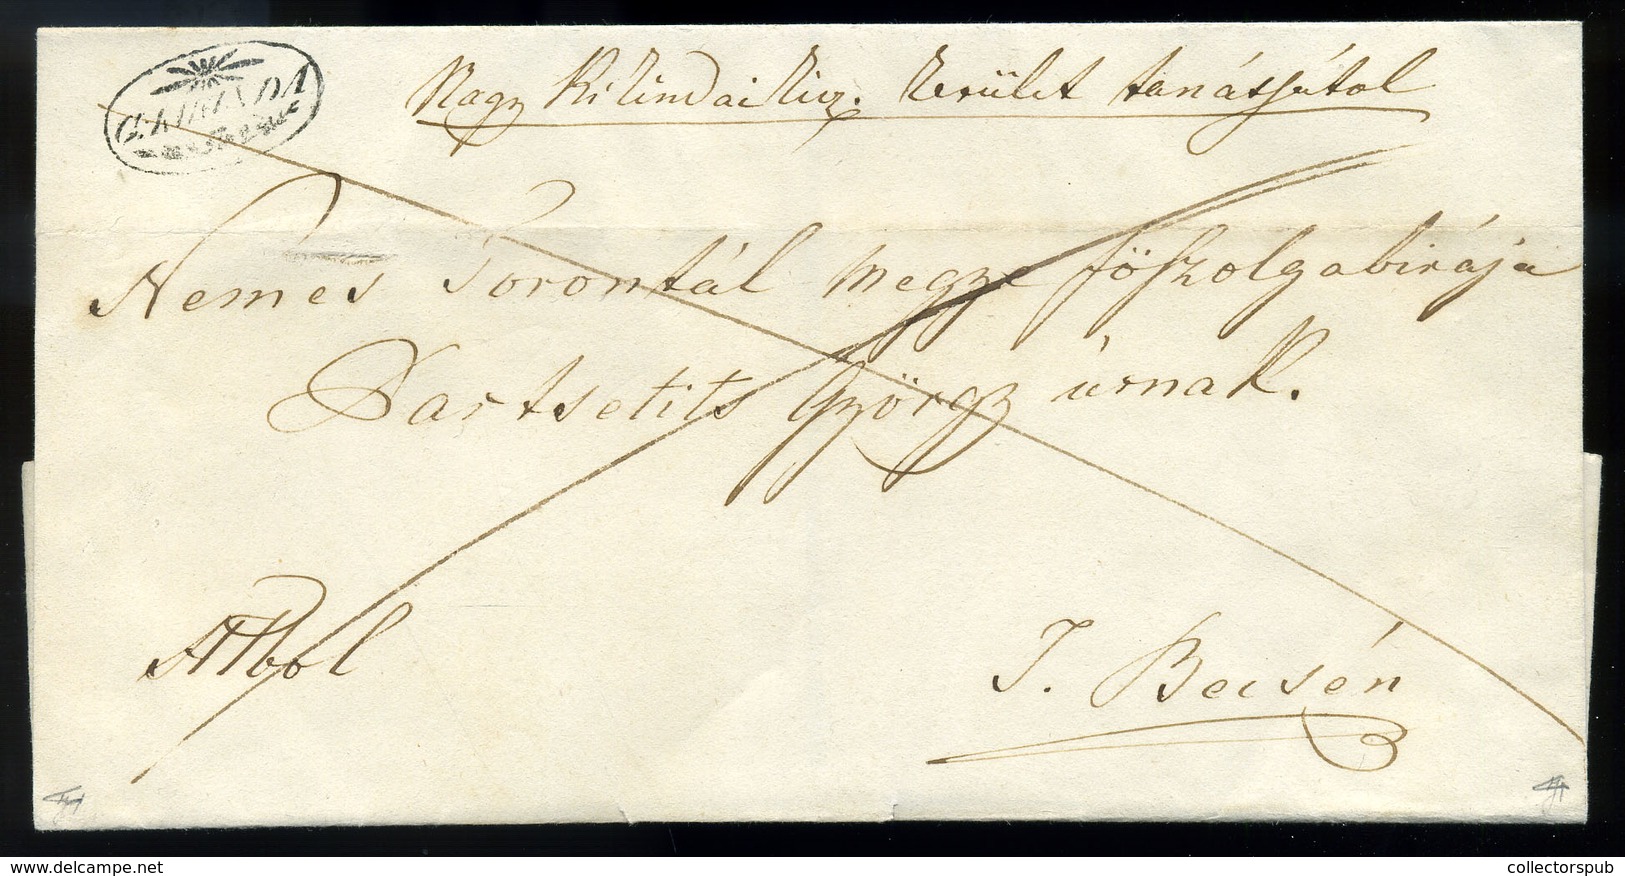 G. KIKINDA
Nagy Kikindai Kivz. Kerület tanátsátol
Nemes Torontál Megye föszolgabirája
Kartsetits György úrnak.
Atbol
T. Becsén
collectorspub